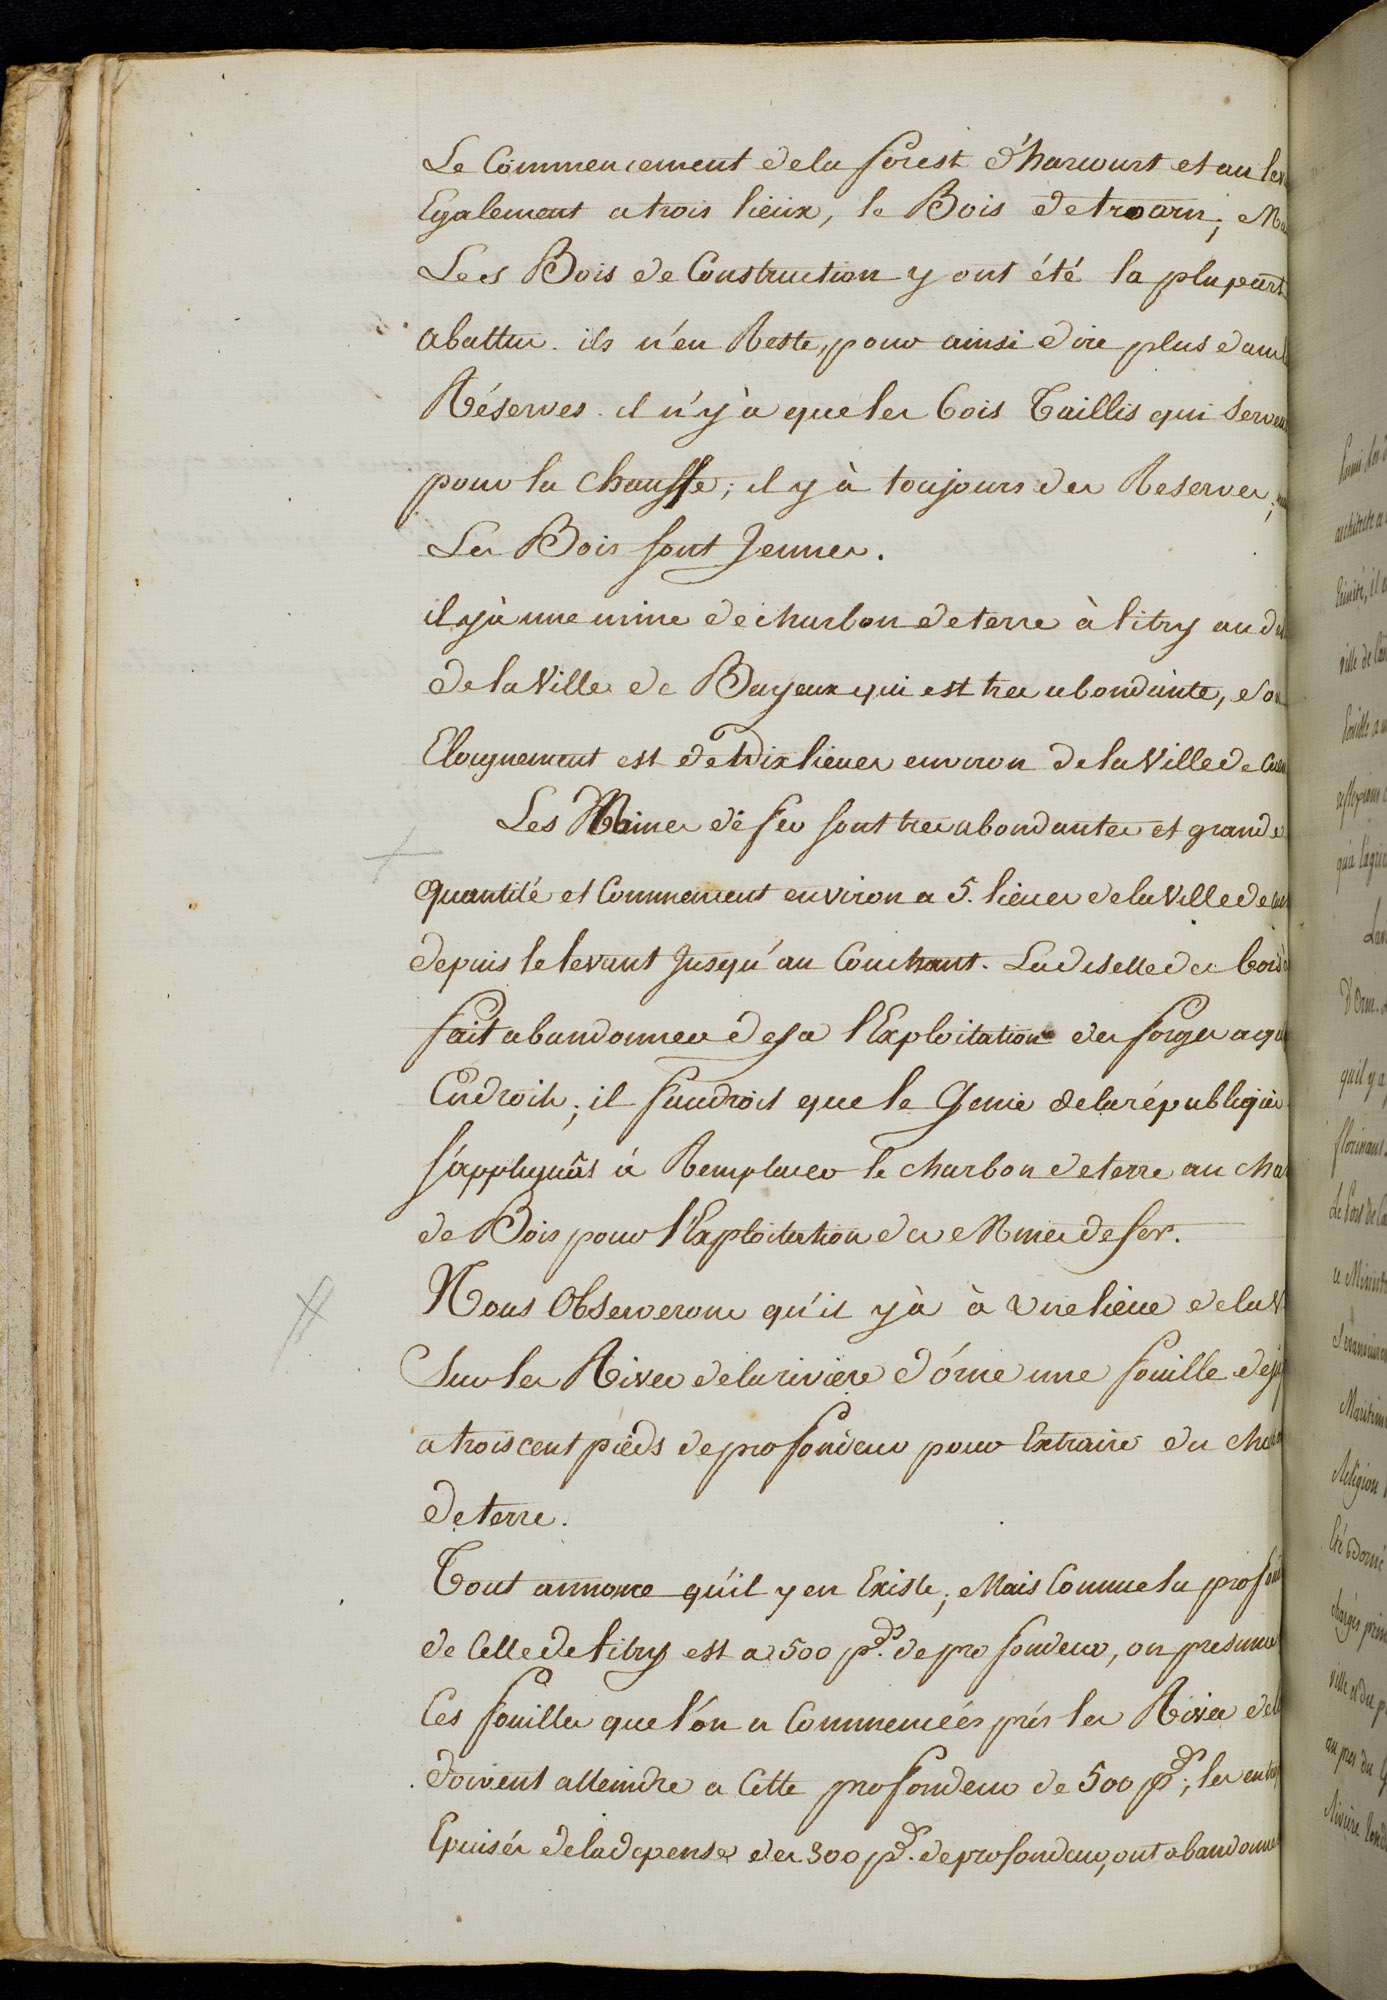 Le Commencement de la forest d'harcourt et au lev
Egalement a trois lieux, le Bois de troarn; Ma
Les Bois de Construction y ont été la plupart
abattu. ils n'en Reste, pour ainsi dire plus dans l
Réserves. il n'y à que les bois Taillis qui Servent
pour la chauffe; il y à toujours des Reserves,
Les Bois sont Jeunes.
il y à une mine de charbon de terre à litry au de
de la Ville de Bayeux qui est tres abondante, son
Eloignement est de dix lieues environ de la Ville de Caen
Les Mines de fer sont tres abondantes et grande
quantité et Commencent environ a 5. lieues de la Ville de Caen
depuis le levant Jusqu'au Couchant. La disette des bois à
fait abandonner deja l'Exploitation des forges a qu
Endroits; il faudroit que le Genie de la républiqie
s'appliquât à Remplacer le charbon de terre au char
de Bois pour l'Exploitation des Mines de fer.
Nous Observerons qu'il y à à une lieue de la V
Sur les Rives de la riviere d'orne une fouille deja
a trois cent pieds de profondeur pour Extraire du cha
de terre.
Tout annonce qu'il y en Existe; Mais Comme la profon
de Celle de litry est a 500 pds. de profondeur, on presume
Ces fouilles que l'on a Commencées près les Rives de l
doivent atteindre a Cette profondeur de 500 pd; les entre
Epuisés de la depense des 300 pd. de profondeur, ont abandonné
parmi les d
architecte a
trinité, il a
ville de Cae
qu'a l'agric
D'Orne.
qu'il y a
florissans
Le Port de Ca
ce Ministr
Maritim
Religion
Eté donné
chargés prin
ville et du p
au pres du G
Riviere